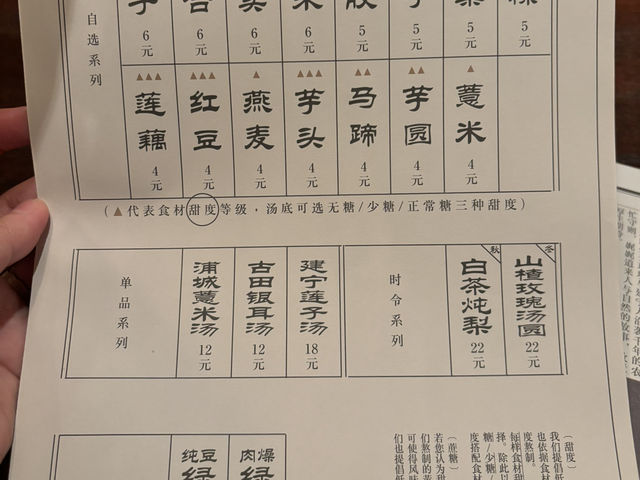 自选系列
6元
6元
6元
6元
5元
5元
5元
5元
▲▲▲ 莲藕 4元
▲▲▲ 红豆 4元
▲ 燕麦 4元
▲▲▲ 芋头 4元
▲▲ 马蹄 4元
▲▲ 芋圆 4元
▲ 薏米 4元
(▲代表食材甜度等级·汤底可选无糖/少糖/正常糖三种甜度)
单品系列
浦城薏米汤 12元
古田银耳汤 12元
建宁莲子汤 18元
时令系列
秋
白茶炖梨 22元
冬
山楂玫瑰汤圆 22元
纯豆
肉燥
(甜度)
我们提倡低
也依据食材
度熬制。
每样食材甜
择。除此以
糖/少糖/
度搭配食材
(蔗糖)
若您认为甜
们熬制的黄
可使得风味
们也提倡低